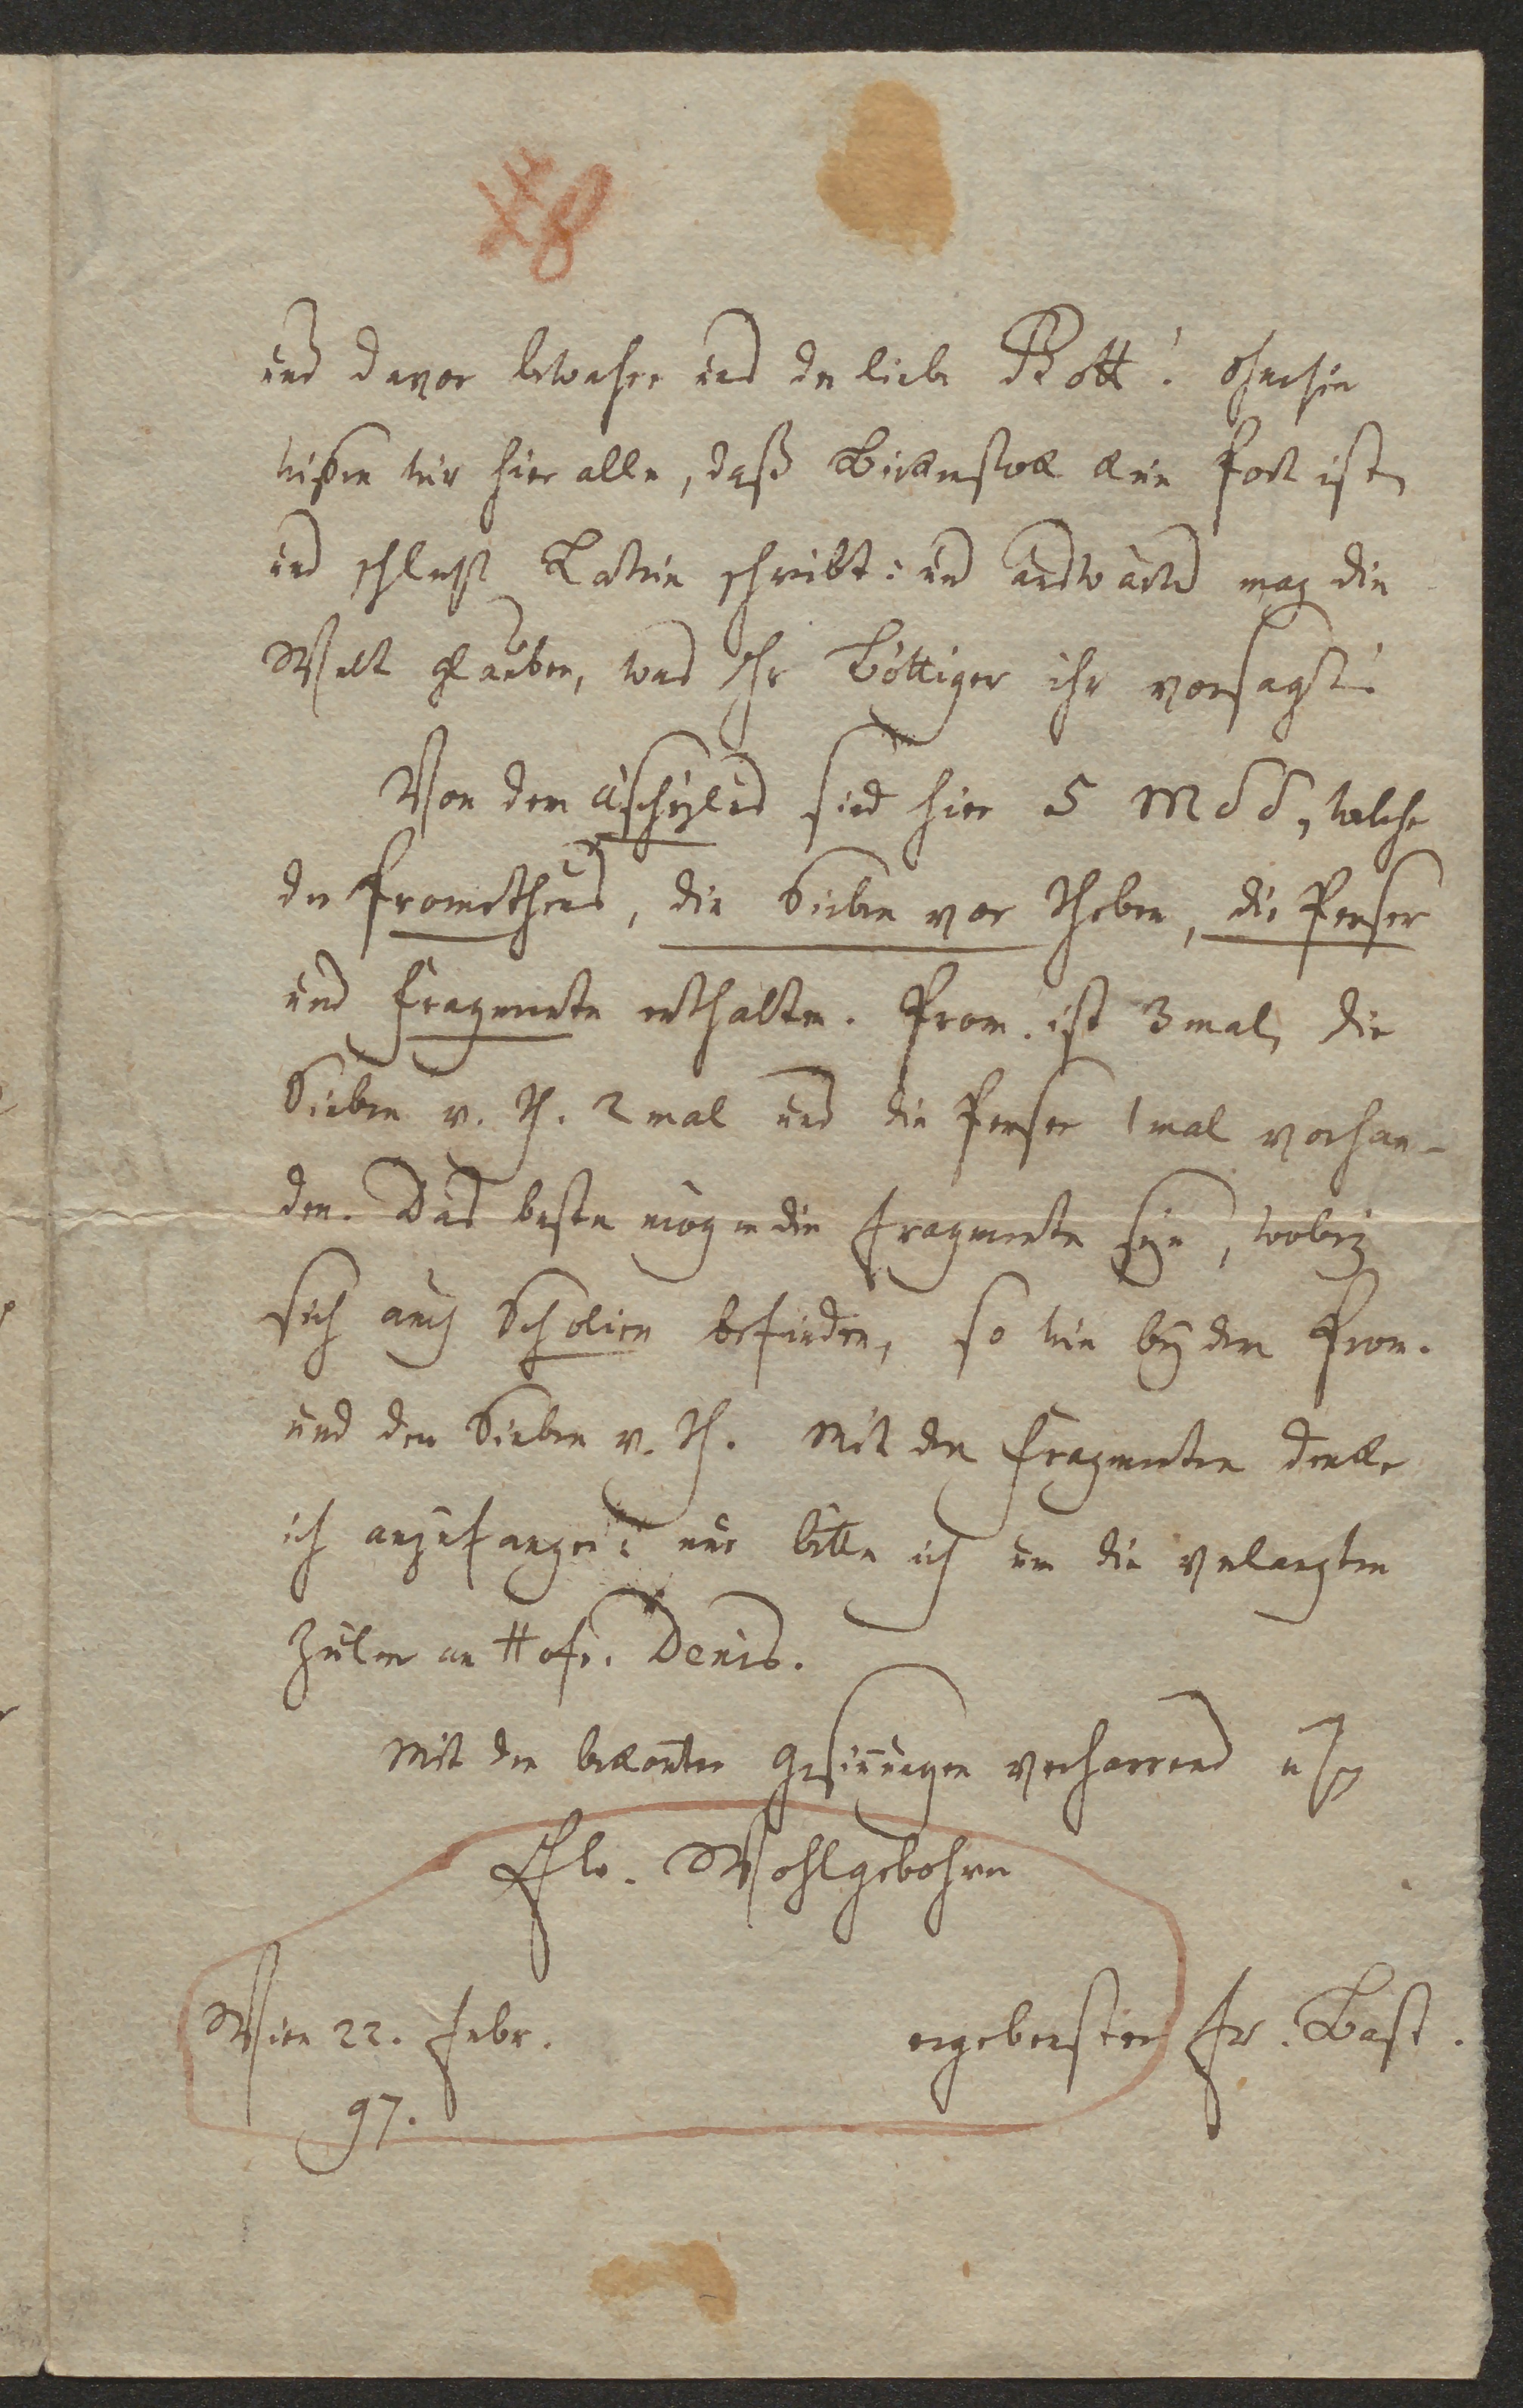 78
und davor bewahre uns der liebe Gott! Ohnehin
wißen wir hier alle, daß Birkenstok kein Poet ist,
und schlecht Latein schreibt: und auswärts mag die
Welt glauben, was Hr Böttiger ihr vorsagt.
Von dem Äschÿlus sind hier 5 MSS, welche
den Prometheus, die Sieben vor Theben, die Perser
und Fragmente enthalten. Prom. ist 3mal, die
Sieben v. Th. 2mal und die Perser 1mal vorhan-
den. Das beste mögen die Fragmente seÿn, wobeÿ
sich auch Scholien befinden, so wie beÿ dem Prom.
und den Sieben v. Th. Mit den Fragmenten denke
ich anzufangen: nur bitte ich um die verlangten
Zeilen an Hofr. Denis.
Mit den bekanten Gesiñungen verharrend
Ew. Wohlgebohren
Wien 22. Febr. ergebenster Fr. Bast.
97.